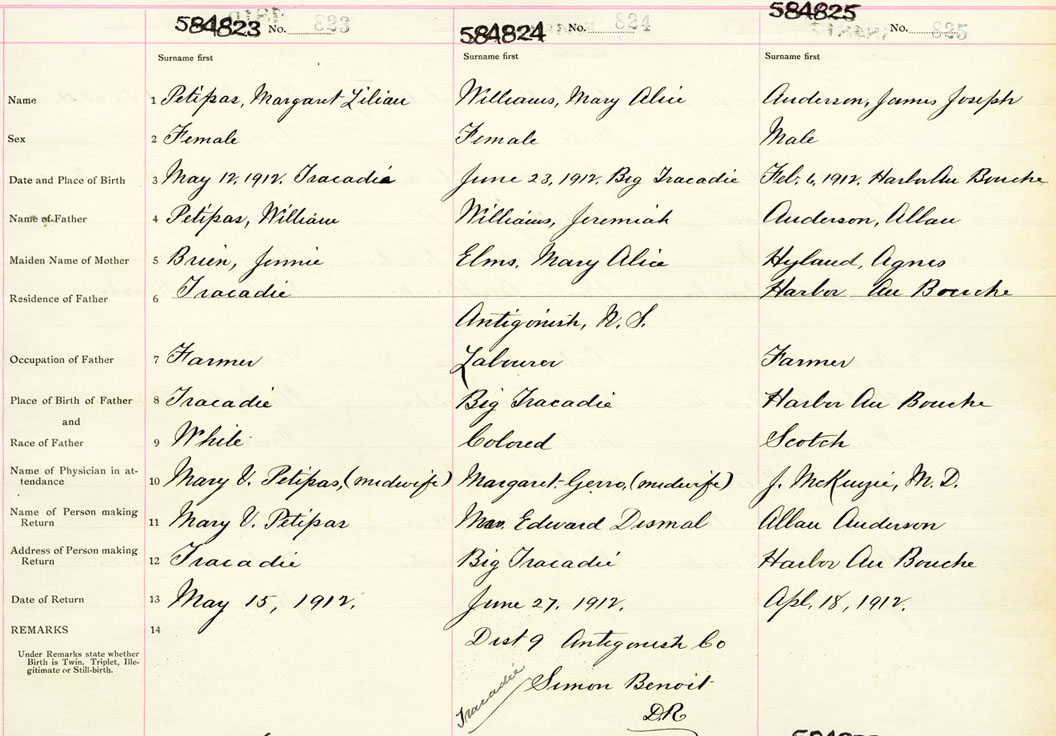 584823 No. 823 584824 No. 824 584825 No. 825
Surname first Surname first Surname first
Name 1 Petipas, Margaret Lilian Williams, Mary Alice Anderson, James Joseph
Sex 2 Female Female Male
Date and Place of Birth 3 May 12, 1912. Tracadie June 23, 1912. Big Tracadie Feb. 6, 1912. Harbor Au Bouche
Name of Father 4 Petipas, William Williams, Jeremiah Anderson, Allan
Maiden Name of Mother 5 Brien, Jennie Elms, Mary Alice Hyland, Agnes
Residence of Father 6 Tracadie Harbor Au Bouche
Antigonish, N.S.
Occupation of Father 7 Farmer Labourer Farmer
Place of Birth of Father 8 Tracadie Big Tracadie Harbor Au Bouche
and
Race of Father 9 White Colored Scotch
Name of Physician in at-
tendance 10 Mary V. Petipas, (midwife) Margaret Gerro, (midwife) J. McKenzie, M.D.
Name of Person making
Return 11 Mary V. Petipas Mrs. Edward Dismal Allan Anderson
Address of Person making
Return 12 Tracadie Big Tracadie Harbor Au Bouche
Date of Return 13 May 15, 1912. June 27, 1912. Apl. 18, 1912.
REMARKS 14
Dist 9 Antigonish Co
Under Remarks state whether
Birth is Twin, Triplet, Ille-
gitimate or Still-birth.
Tracadie Simon Benoit
D.R